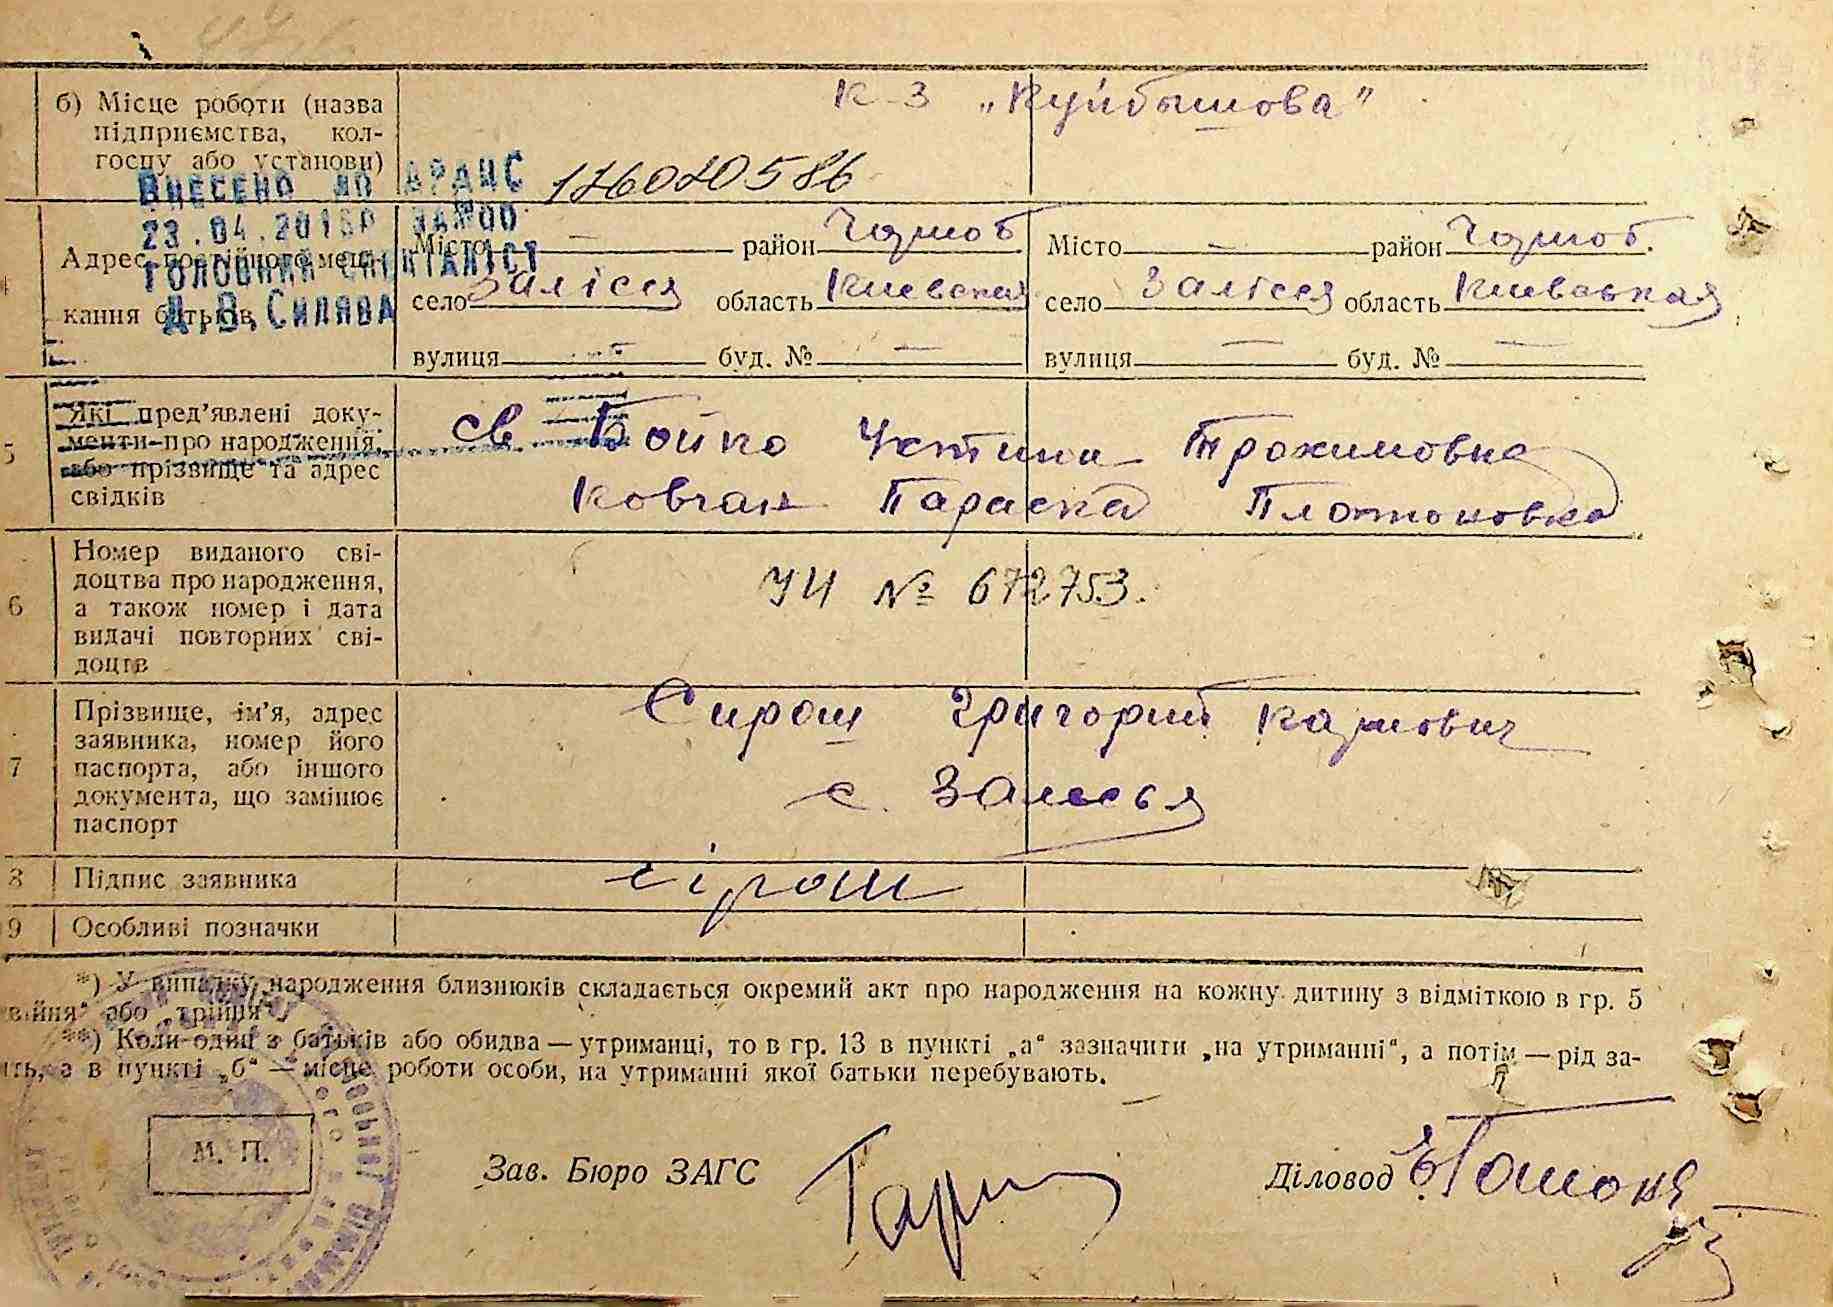 б) Місце роботи (назва
підприємства, кол-
госпу або установи)
К-з „Куйбышова”
Внесено до ДРАЦС
23.04.2015р
головний спеціаліст
Д.В. Силява
Адрес постійного меш-
кання батьків
Місто — район Чорноб
село Залісся область Киевская
вулиця буд. № —
Місто — район Чорноб.
село Залісся область Киевская
вулиця — буд. № —
5
Які пред’явлені доку-
менти про народження,
або прізвище та адрес
свідків
св Бойко Устина Трохимовна
Ковган Параска Платоновна
6
Номер виданого сві-
доцтва про народження,
а також номер і дата
видачі повторних сві-
доцтв
УИ № 672753.
7
Прізвище, ім’я, адрес
заявника, номер його
паспорта, або іншого
документа, що замінює
паспорт
Сираш Григорий Карпович
с. Залесья
8
Підпис заявника
Сіраш
9
Особливі позначки
*) У випадку народження близнюків складається окремий акт про народження на кожну дитину з відміткою в гр. 5
або „трійня“.
**) Коли один з батьків або обидва — утриманці, то в гр. 13 в пункті „а“ зазначити „на утриманні“, а потім — рід за-
а в пункті „б“ — місце роботи особи, на утриманні якої батьки перебувають.
М. П.
Зав. Бюро ЗАГС
Діловод